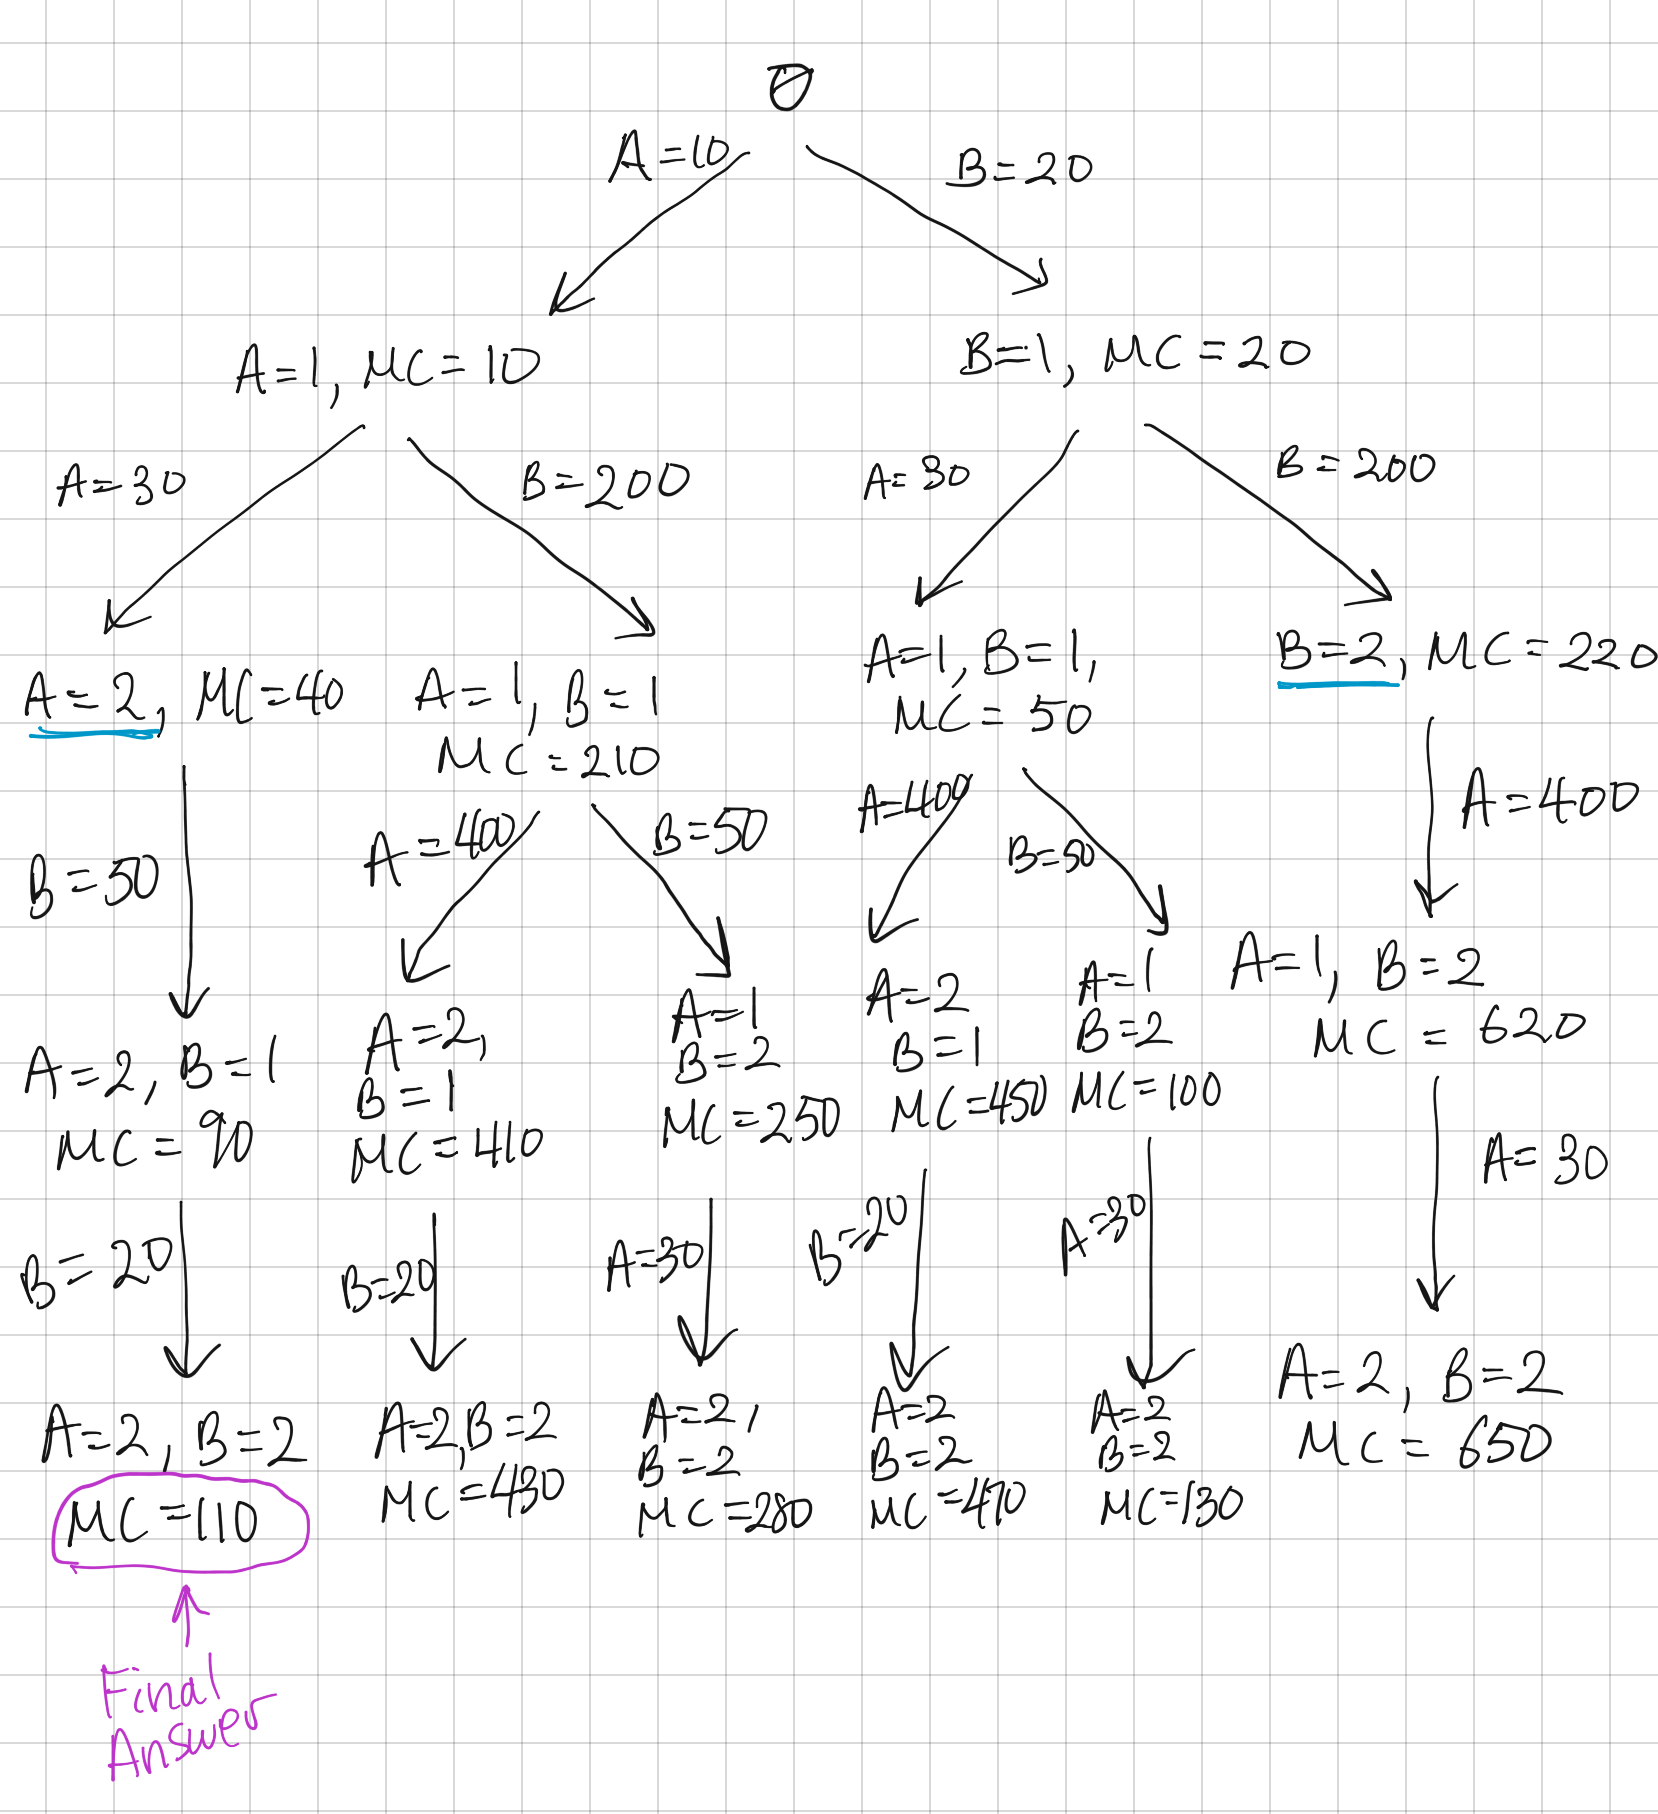 0
A=10
B=20
A=1, MC=10
B=1, MC=20
A=30
B=200
A=30
B=200
A=2, MC=40
A=1, B=1
MC=210
A=1, B=1,
MC=50
B=2, MC=220
B=50
A=400
B=50
A=400
B=50
A=400
A=2, B=1
MC=90
A=2,
B=1
MC=410
A=1
B=2
MC=250
A=2
B=1
MC=450
A=1
B=2
MC=100
A=1, B=2
MC=620
B=20
B=20
A=30
B=20
A=30
A=30
A=2, B=2
MC=110
A=2,B=2
MC=430
A=2,
B=2
MC=280
A=2
B=2
MC=470
A=2
B=2
MC=130
A=2, B=2
MC=650
Final
Answer